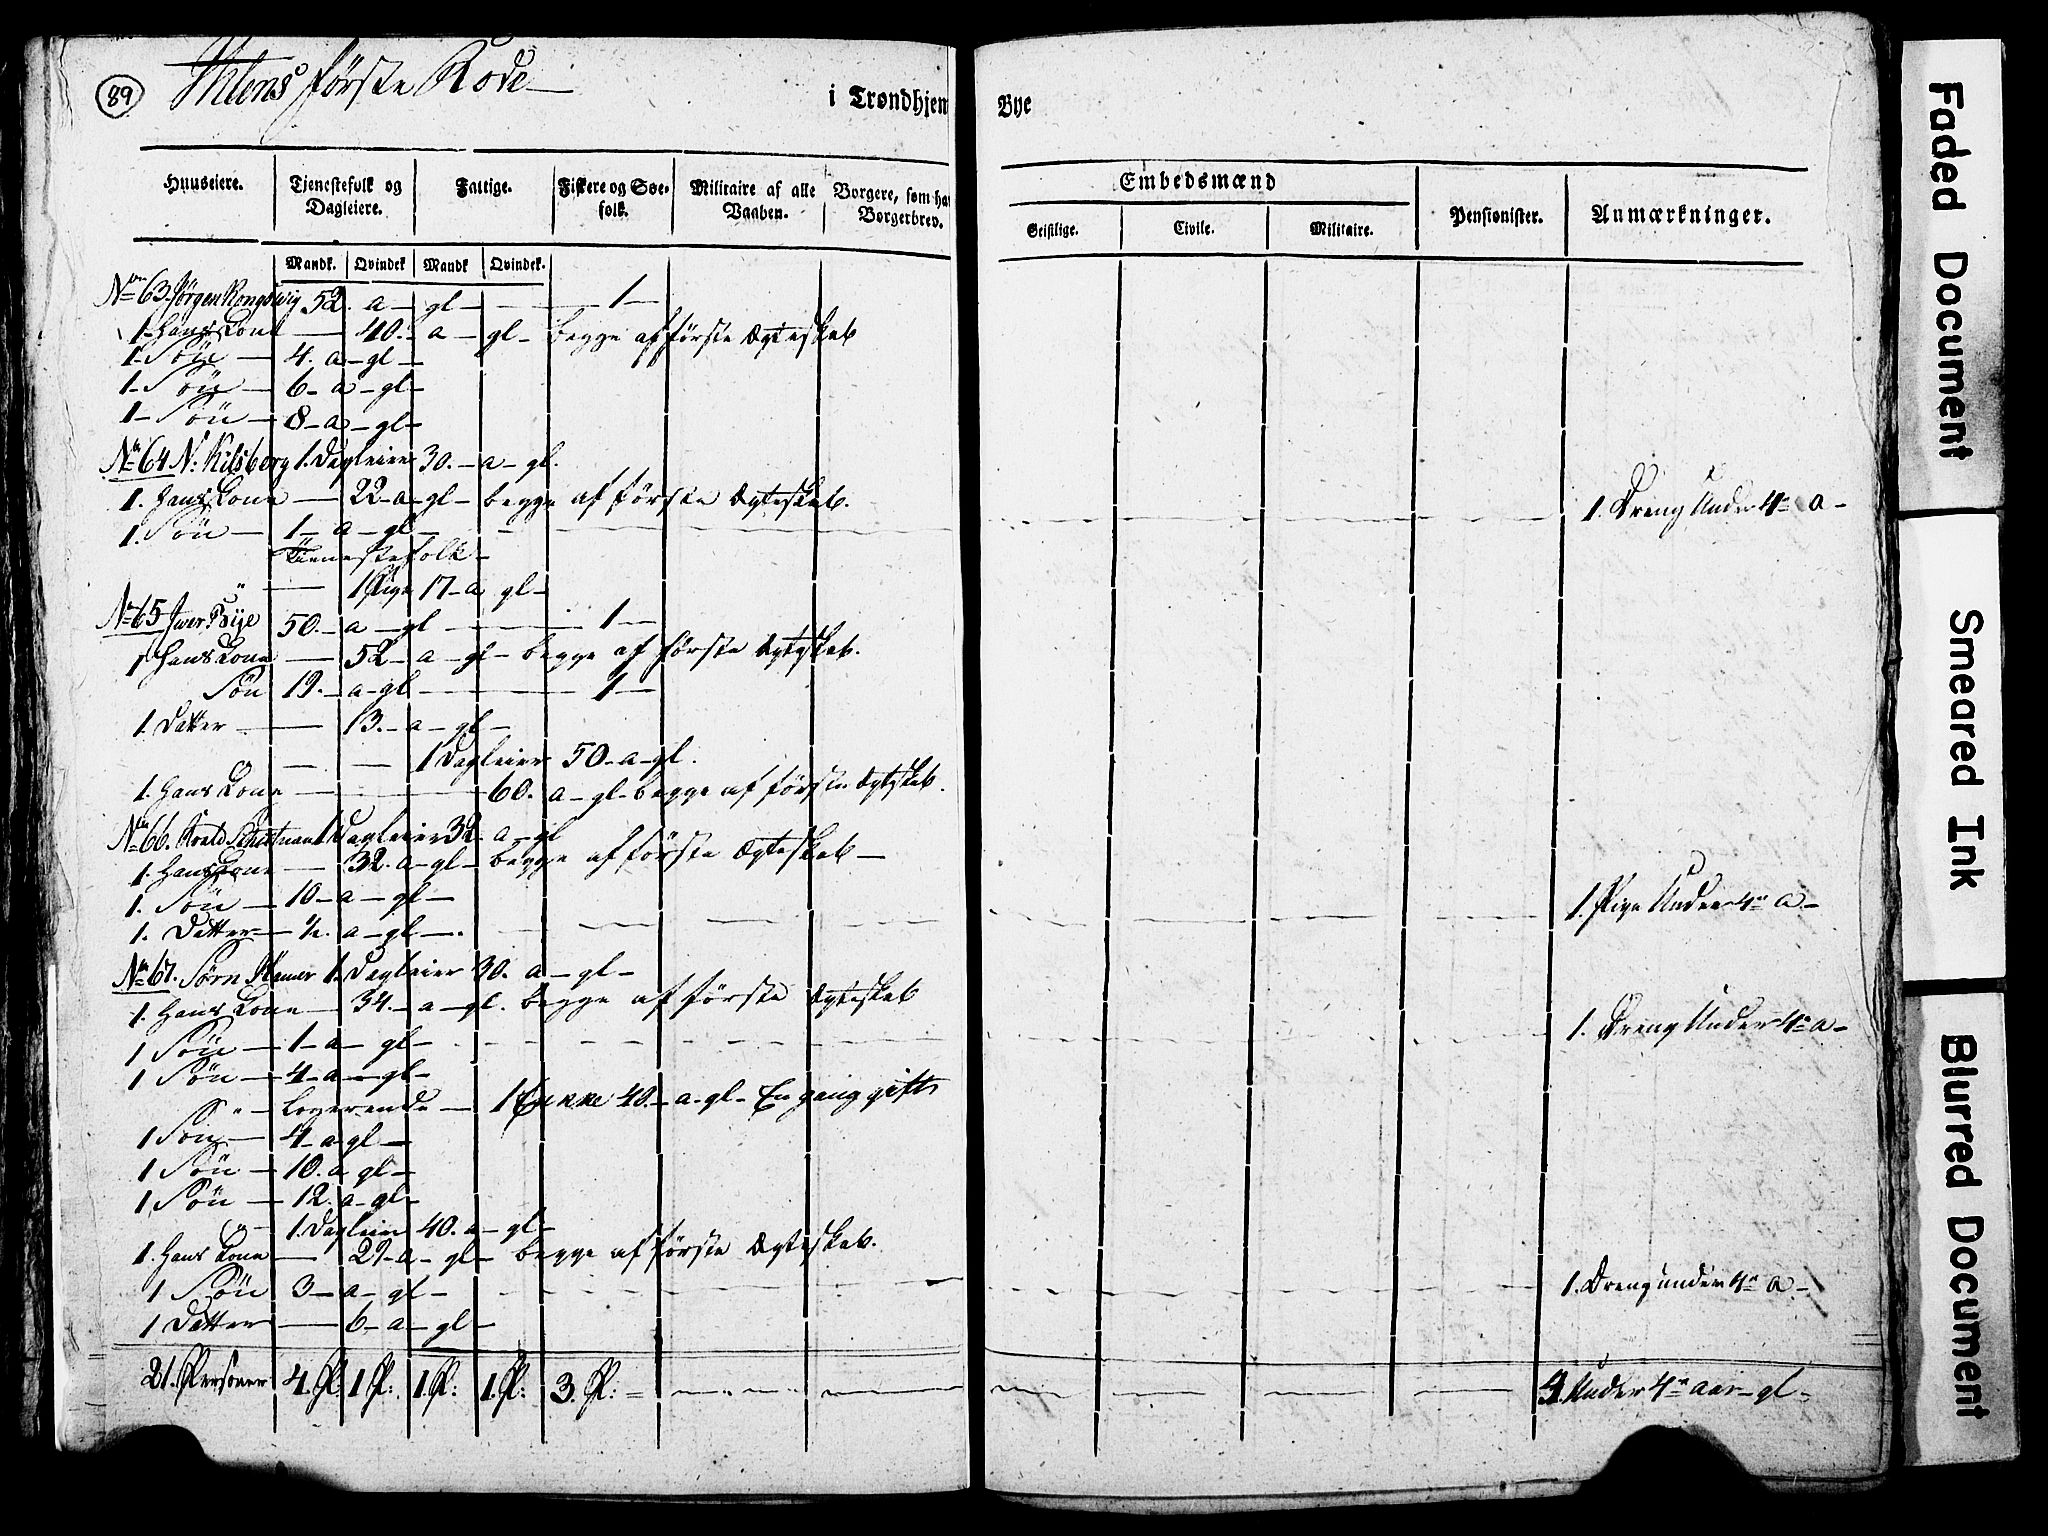 89
Ihlens første Rode
i Trondhjem Bye
Huuseiere. Tjenestefolk og Dagleiere. Fattige. Fiskere og Søe-folk. Militaire af alle Vaaben. Borgere, som ha Borgerbrev. Embedsmænd Pensionister. Anmærkninger.
Geistlige. Civile. Militaire.
Mandk. Qvindek Mandk Qvindek.
No 63. Jørgen Rongswig 52. a - gl - 1 -
1 - Hans Kone - 40. - a - gl - begge af første Ægteskab
1 - Søn - 4. a - gl -
1 - Søn - 6 - a - gl -
1 - Søn - 8 - a - gl -
No 64 N: Kilsberg 1. Dagleier 30. - a - gl.
1. Hans Kone - 22 - a - gl - begge af første Ægteskab. 1. Dreng Under 4re a -
1. Søn - 1 - a - gl -
Tienestefolk -
" - 1 Pige 17 - a gl -
No 65 Iver 50. - a - gl - 1 -
1 Hans Kone - 52 - a - gl - begge af første Ægteskab.
Søn 19. - a - gl - 1 -
1. Datter - 13. - a - gl -
1 Dagleier 50 - a - gl.
1. Hans Kone - 60. a - gl - begge af første Ægteskab.
No 66. 1 Dagleier 32 - a - gl
1. Hans Kone - 32. a - gl - begge af første Ægteskab -
1. Søn - 10 - a - gl - 1. Pige Under 4re a -
1. Datter - ½. a - gl -
No 67. Sørn Hamer 1. Dagleier 30. a - gl -
1. Hans Kone - 34. - a - gl. begge af første Ægteskab
1 Søn - 1 - a - gl - 1. Dreng Under 4re a -
1 Søn - 4 - a - gl -
" - Logerende - 1 Enkke 40. - a - gl - En gang gift
1 Søn - 4 - a gl -
1 Søn - 10. a gl -
1 Søn - 12. a - gl -
" - 1. Dagleier 40. a - gl -
1. Hans Kone - 29 - a - gl - begge af første Ægteskab.
1 Søn 3 - a - gl - 1. Dreng under 4re a -
1 Datter - 6 - a - gl -
21. Personer 4. P: 1 P: 1. P: 1. P: 3. P: = 4. Under 4re aar - gl -
Faded Document
Smeared Ink
Blurred Document